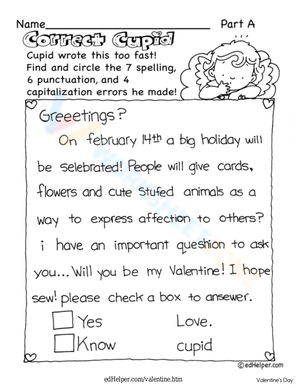 Name Part A
Correct Cupid
Cupid wrote this too fast!
Find and circle the 7 spelling,
6 punctuation, and 4
capitalization errors he made!
Greeetings?
On february 14th a big holiday will
be selebrated! People will give cards,
flowers and cute stufed animals as a
way to express affection to others?
i have an important queshion to ask
you...Will you be my Valentine! I hope
sew! please check a box to anser.
Yes Love.
Know cupid
©edHelper.com
edHelper.com/valentine.htm
Valentine's Day